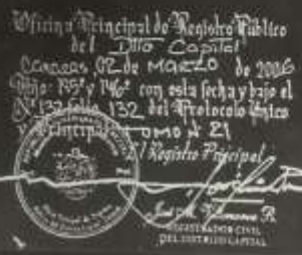 Oficina Principal de Registro Público
del Dtto Capital
Caracas, 02 de MARZO de 2006
Año: 195º y 146º con esta fecha y bajo el
Nº 132 folio 132 del Protocolo Único
y Principal TOMO Nº 21
El Registro Principal
José M. R.
REGISTRADOR CIVIL
DEL DISTRITO CAPITAL